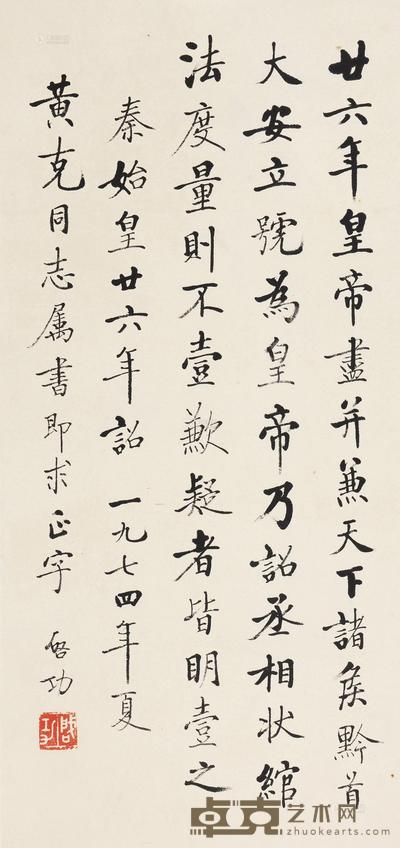 廿六年皇帝盡并兼天下諸矦黔首
大安立號為皇帝乃詔丞相状綰
法度量則不壹歉疑者皆明壹之
秦始皇廿六年詔 一九七四年夏
黄克同志属書即求正字 啓功
啟功
卓克艺术网
zhuokearts.com